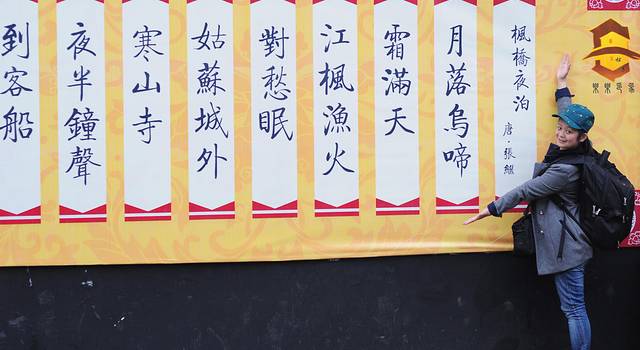 楓橋夜泊
唐·張繼
月落烏啼
霜滿天
江楓漁火
對愁眠
姑蘇城外
寒山寺
夜半鐘聲
到客船